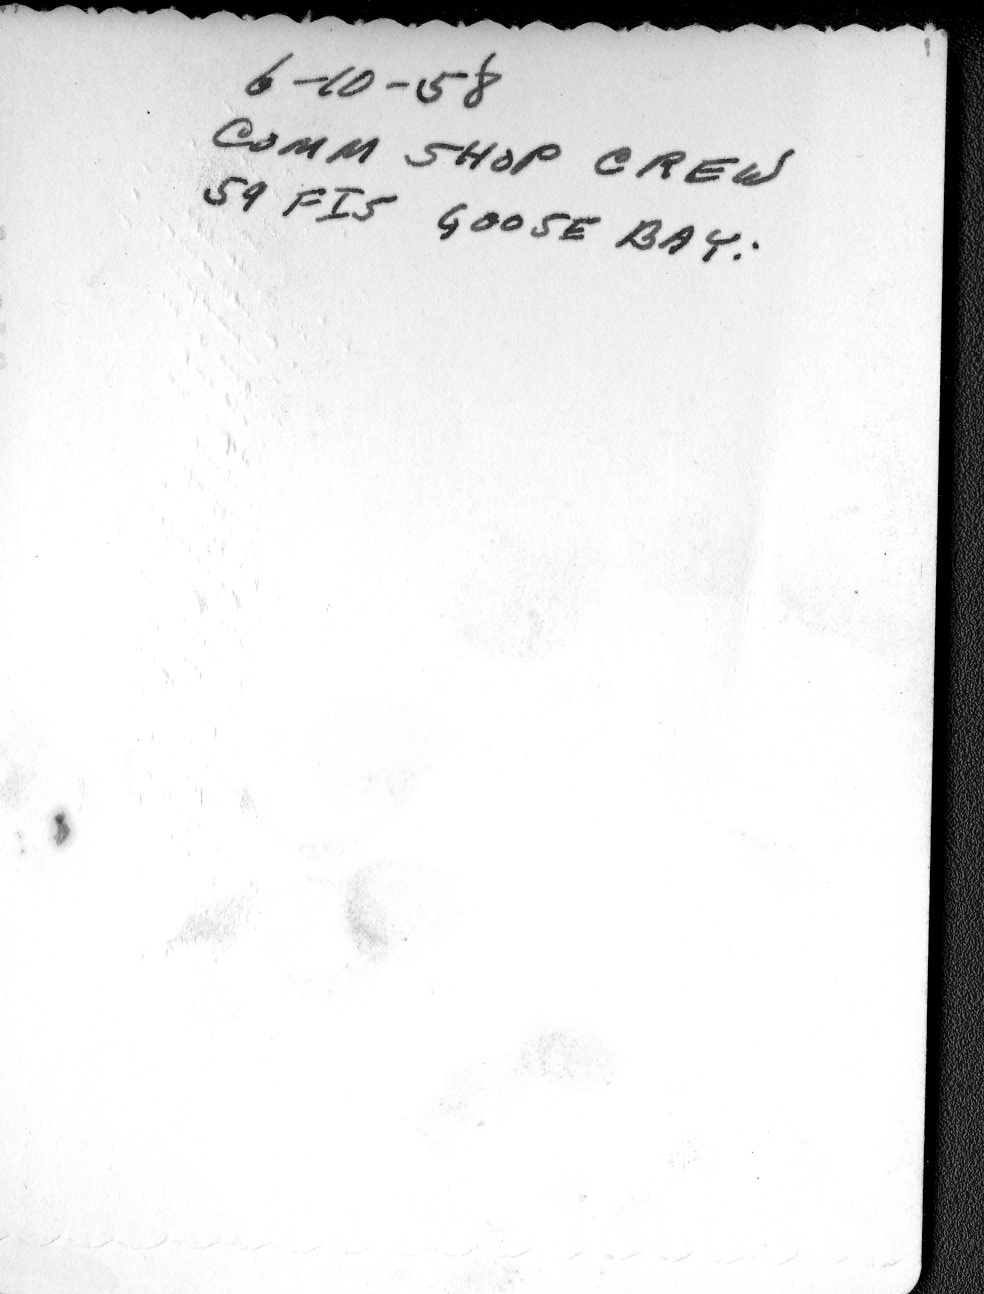 6-10-58
COMM SHOP CREW
59 FIS GOOSE BAY.